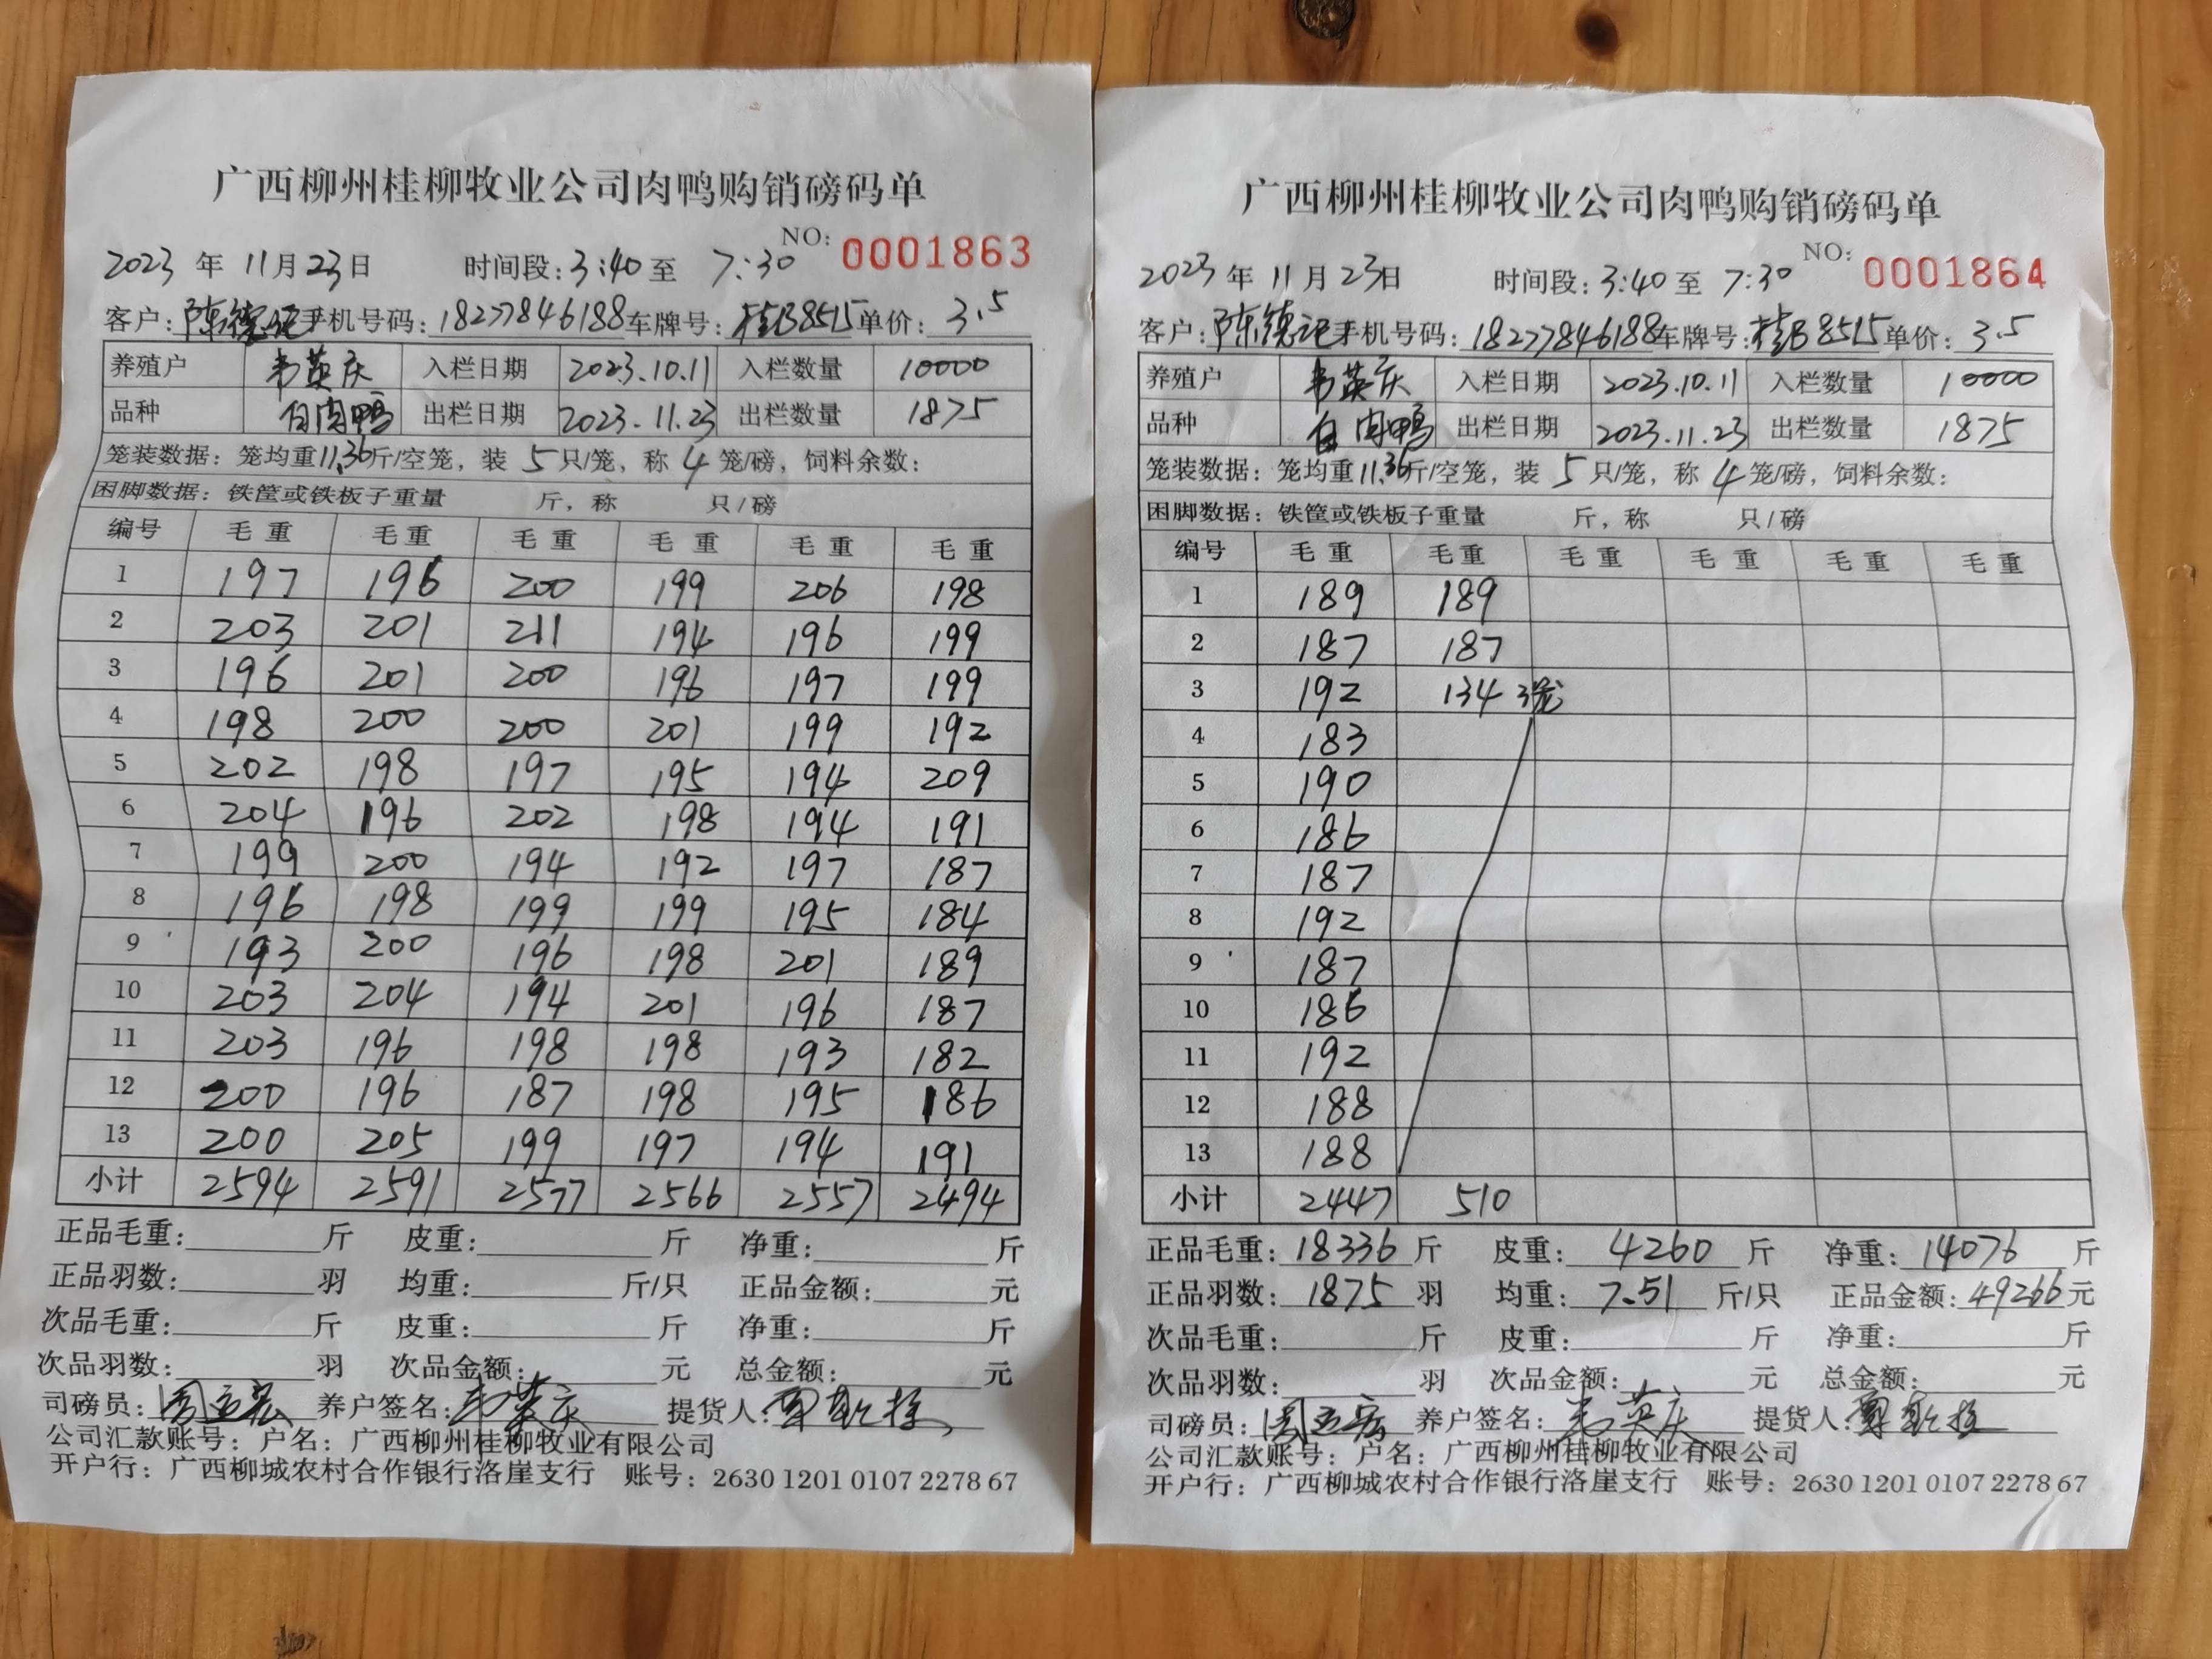 广西柳州桂柳牧业公司肉鸭购销磅码单
NO: 0001863
2023 年 11月23日 时间段: 3:40 至 7:30
客户: 陈德记 手机号码: 18277846188 车牌号: 桂B8515 单价: 3.5
养殖户 韦英庆 入栏日期 2023.10.11 入栏数量 10000
品种 白肉鸭 出栏日期 2023.11.23 出栏数量 1875
笼装数据: 笼均重11.36斤/空笼, 装 5 只/笼, 称 4 笼/磅, 饲料余数:
困脚数据: 铁筐或铁板子重量 斤, 称 只/磅
编号 毛重 毛重 毛重 毛重 毛重 毛重
1 197 196 200 199 206 198
2 203 201 211 194 196 199
3 196 201 200 196 197 199
4 198 200 200 201 199 192
5 202 198 197 195 194 209
6 204 196 202 198 194 191
7 199 200 194 192 197 187
8 196 198 199 199 195 184
9 193 200 196 198 201 189
10 203 204 194 201 196 187
11 203 196 198 198 193 182
12 200 196 187 198 195 186
13 200 205 199 197 194 191
小计 2594 2591 2577 2566 2557 2494
正品毛重: 斤 皮重: 斤 净重: 斤
正品羽数: 羽 均重: 斤/只 正品金额: 元
次品毛重: 斤 皮重: 斤 净重: 斤
次品羽数: 羽 次品金额: 元 总金额: 元
司磅员: 养户签名: 韦英庆 提货人:
公司汇款账号: 户名: 广西柳州桂柳牧业有限公司
开户行: 广西柳城农村合作银行洛崖支行 账号: 2630 1201 0107 2278 67
广西柳州桂柳牧业公司肉鸭购销磅码单
NO: 0001864
2023 年 11 月 23日 时间段: 3:40 至 7:30
客户: 陈德记 手机号码: 18277846188 车牌号: 桂B8515 单价: 3.5
养殖户 韦英庆 入栏日期 2023.10.11 入栏数量 10000
品种 白肉鸭 出栏日期 2023.11.23 出栏数量 1875
笼装数据: 笼均重11.36斤/空笼, 装 5 只/笼, 称 4 笼/磅, 饲料余数:
困脚数据: 铁筐或铁板子重量 斤, 称 只/磅
编号 毛重 毛重 毛重 毛重 毛重 毛重
1 189 189
2 187 187
3 192 134 3笼
4 183
5 190
6 186
7 187
8 192
9 187
10 186
11 192
12 188
13 188
小计 2447 510
正品毛重: 18336 斤 皮重: 4260 斤 净重: 14076 斤
正品羽数: 1875 羽 均重: 7.51 斤/只 正品金额: 49266 元
次品毛重: 斤 皮重: 斤 净重: 斤
次品羽数: 羽 次品金额: 元 总金额: 元
司磅员: 养户签名: 韦英庆 提货人:
公司汇款账号: 户名: 广西柳州桂柳牧业有限公司
开户行: 广西柳城农村合作银行洛崖支行 账号: 2630 1201 0107 2278 67